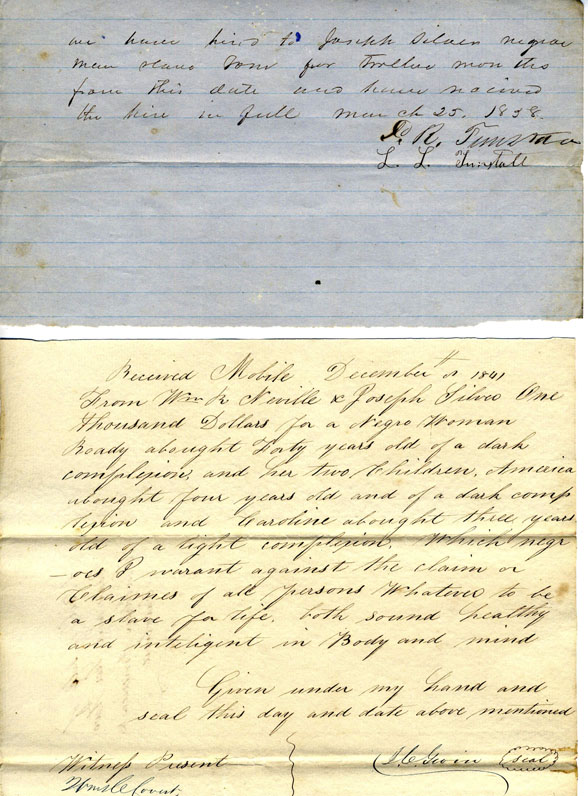 we have hired to Joseph Silver negroe
man slave Tom for Twelve months
from this date and have received
the hire in full march 25, 1858
R. Tunstall
L. L. Tunstall
Received Mobile December th 1841
From Wm R Neville & Joseph Silver One
thousand Dollars for a Negro Woman
Roady abought Forty years old of a dark
complexion, and her two Children. America
abought four years old and of a dark comp
lexion and Caroline abought three years
old of a light complexion. Which negr
-oes I warant against the claim or
Claimes of all persons Whatever to be
a slave for life. both sound healthy
and inteligent in Body and mind
Given under my hand and
seal this day and date above mentioned
Witness Present
Covert
Gwin seal